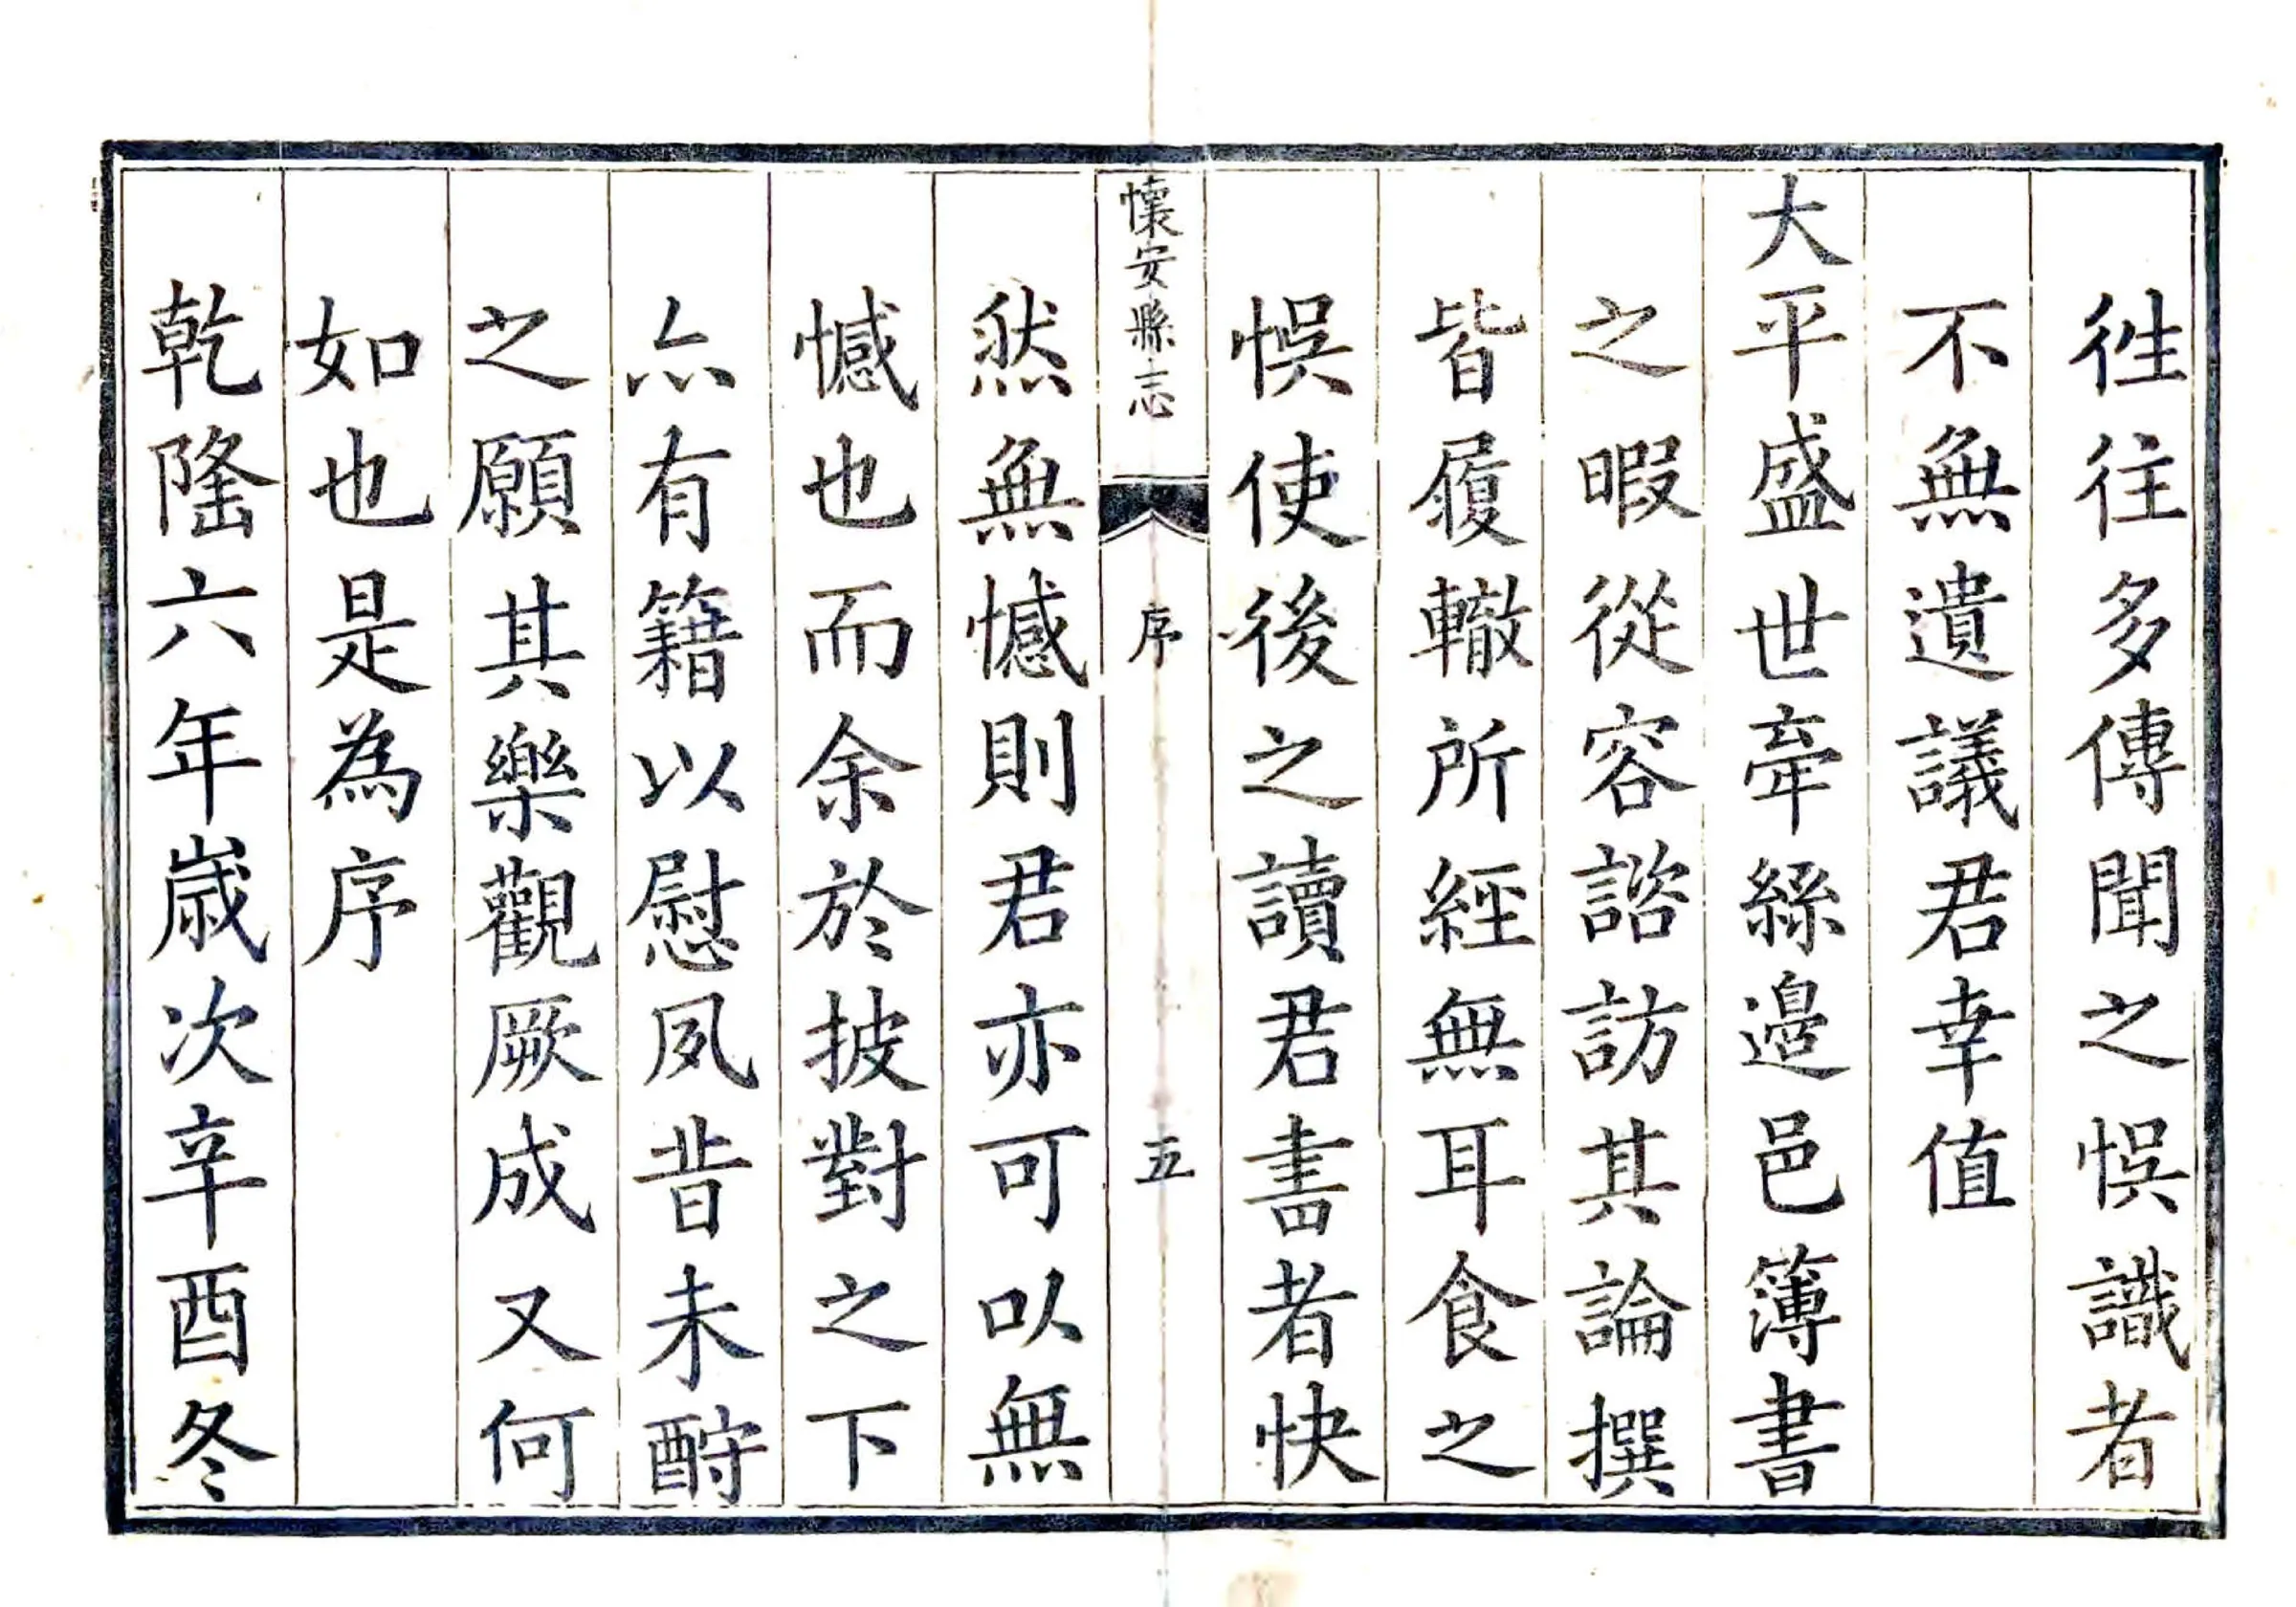 徃往多傳聞之悮識者
不無遺議君幸值
大平盛世牽絲邉邑簿書
之暇從容諮訪其論撰
皆履轍所經無耳食之
悮使後之讀君書者快
懷安縣志
序
五
然無憾則君亦可以無
憾也而余於披對之下
亦有籍以慰夙昔未酧
之願其樂觀厥成又何
如也是為序
乾隆六年歲次辛酉冬